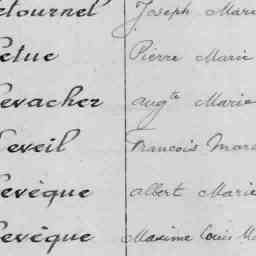 etournel Joseph Mari
etue Pierre Marie
evacher augte Marie
eveil Francois Marc
evêque albert Marie
evêque Maxime Louis M